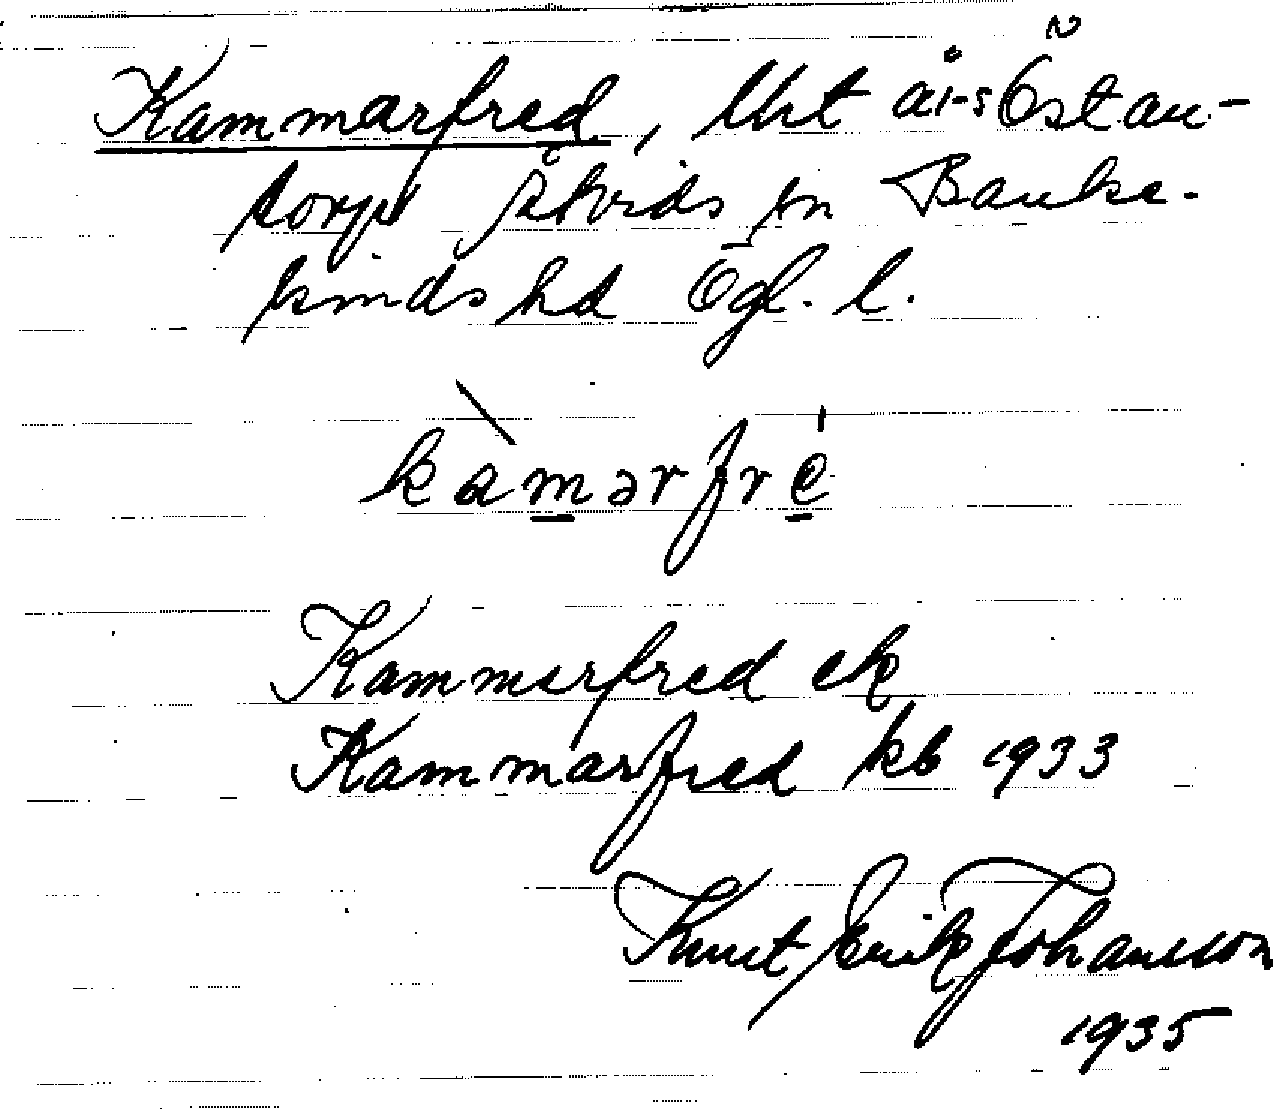 Kammarfred, lht å i-s Östan-
torp Åtvids sn Banke-
kinds hd Ögl. l.
kàmərfré
Kammarfred ek
Kammarfred kb 1933
Knut Erik Johansson
1935